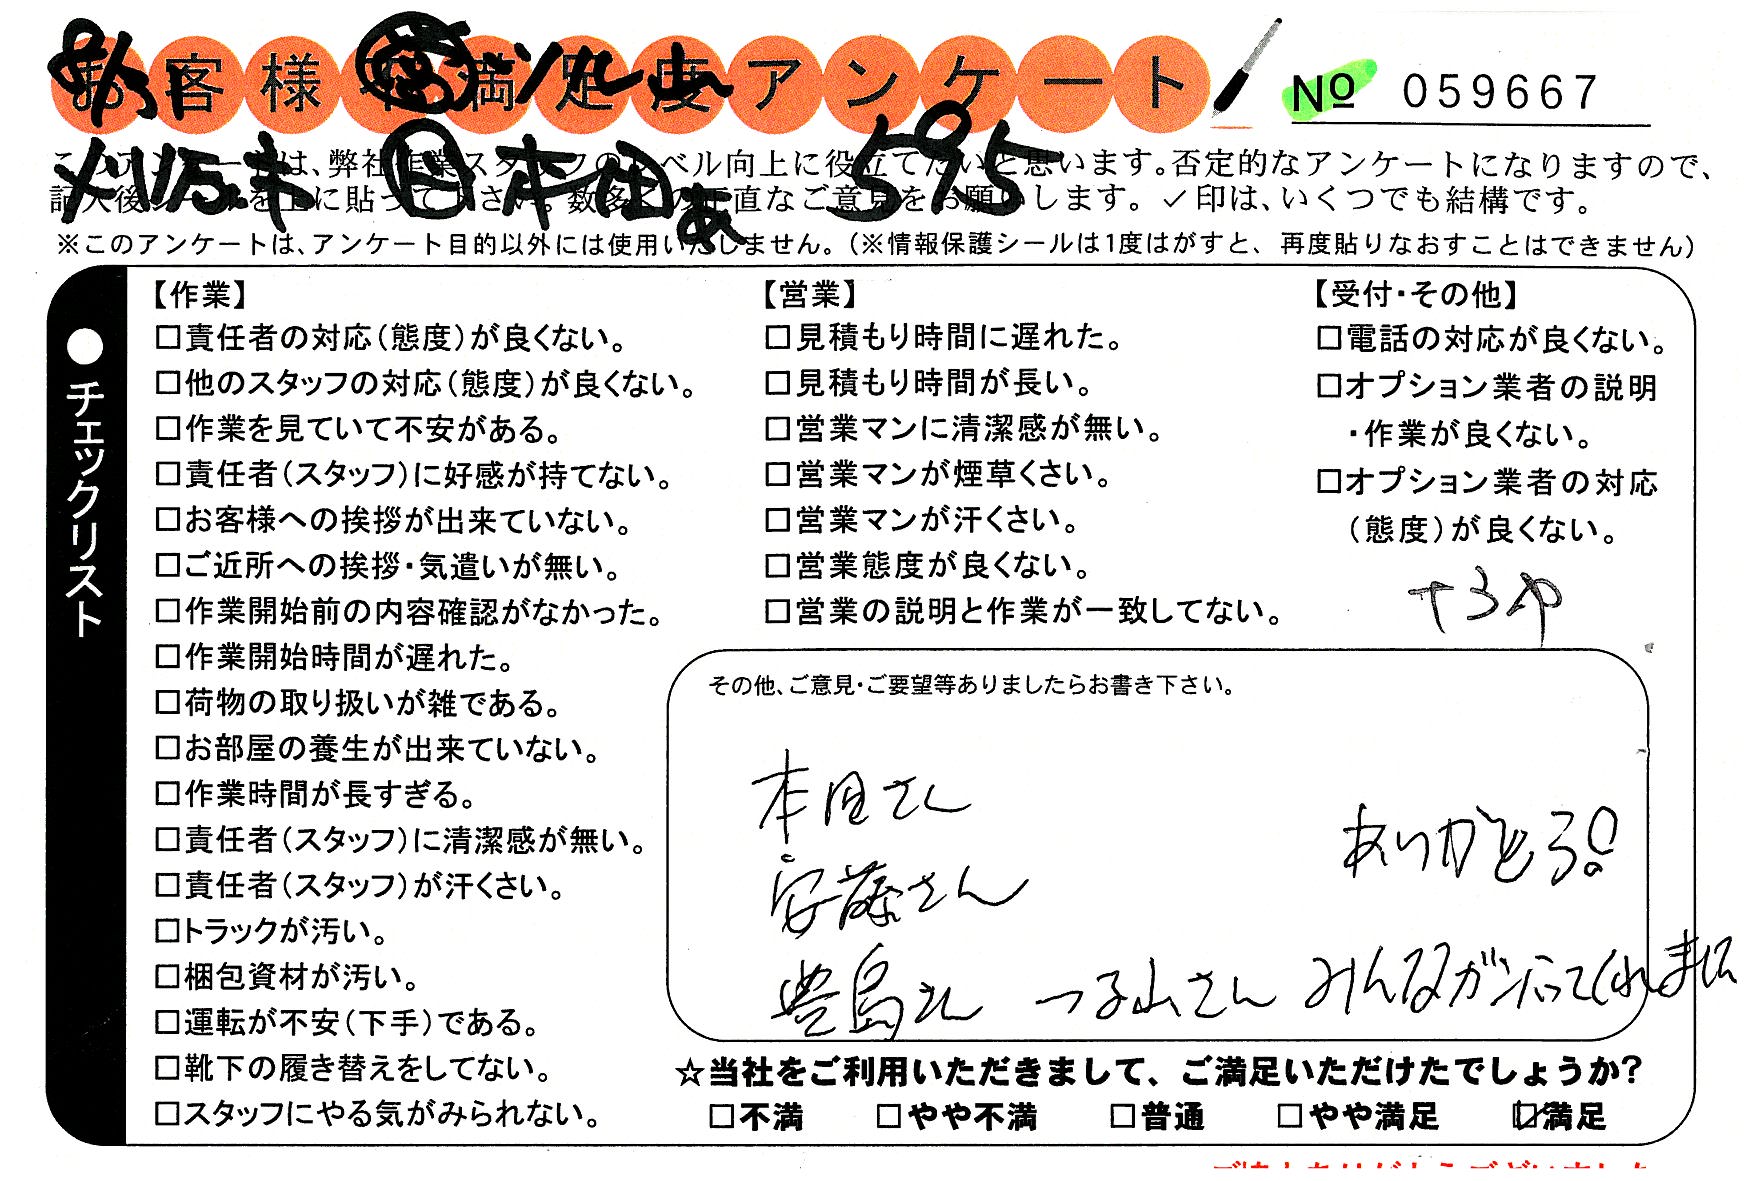 お客様不満足度アンケート
№ 059667
8/31
595
本田
このアンケートは、弊社作業スタッフのレベル向上に役立てたいと思います。否定的なアンケートになりますので、
記入後シールを上に貼って下さい。数多くの正直なご意見をお願いします。✓印は、いくつでも結構です。
※このアンケートは、アンケート目的以外には使用いたしません。(※情報保護シールは1度はがすと、再度貼りなおすことはできません)
●チェックリスト
【作業】
□責任者の対応(態度)が良くない。
□他のスタッフの対応(態度)が良くない。
□作業を見ていて不安がある。
□責任者(スタッフ)に好感が持てない。
□お客様への挨拶が出来ていない。
□ご近所への挨拶・気遣いが無い。
□作業開始前の内容確認がなかった。
□作業開始時間が遅れた。
□荷物の取り扱いが雑である。
□お部屋の養生が出来ていない。
□作業時間が長すぎる。
□責任者(スタッフ)に清潔感が無い。
□責任者(スタッフ)が汗くさい。
□トラックが汚い。
□梱包資材が汚い。
□運転が不安(下手)である。
□靴下の履き替えをしてない。
□スタッフにやる気がみられない。
【営業】
□見積もり時間に遅れた。
□見積もり時間が長い。
□営業マンに清潔感が無い。
□営業マンが煙草くさい。
□営業マンが汗くさい。
□営業態度が良くない。
□営業の説明と作業が一致してない。
【受付・その他】
□電話の対応が良くない。
□オプション業者の説明
・作業が良くない。
□オプション業者の対応
(態度)が良くない。
その他、ご意見・ご要望等ありましたらお書き下さい。
本田さん
安藤さん
ありがとう!
豊島さん つる山さん みんなガンバってくれました
☆当社をご利用いただきまして、ご満足いただけたでしょうか?
□不満 □やや不満 □普通 □やや満足 ☑満足